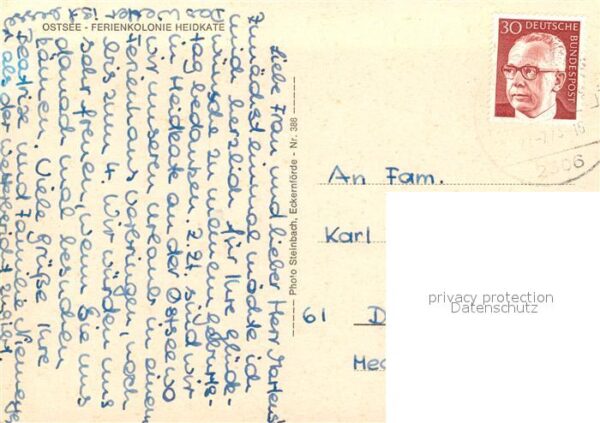 OSTSEE - FERIENKOLONIE HEIDKATE
Liebe Frau und lieber Herr
Zunächst einmal möchte ich
mich herzlich für Ihre Glück-
wünsche zu meinem Geburts-
tag bedanken. Z.Zt. sind wir
in Heidkate an der Ostsee wo
wir unseren Urlaub in einem
Ferienhaus verbringen, noch
bis zum 4. Wir würden uns
sehr freuen, wenn Sie uns
danach mal besuchen
können. Viele Grüße Ihre
Beatrice und Familie
Das Wetter ist besser
als der Wetterbericht
Photo Steinbach, Eckernförde - Nr. 388
30 DEUTSCHE BUNDESPOST
2306
An Fam.
Karl
61 D
Mec
privacy protection
Datenschutz